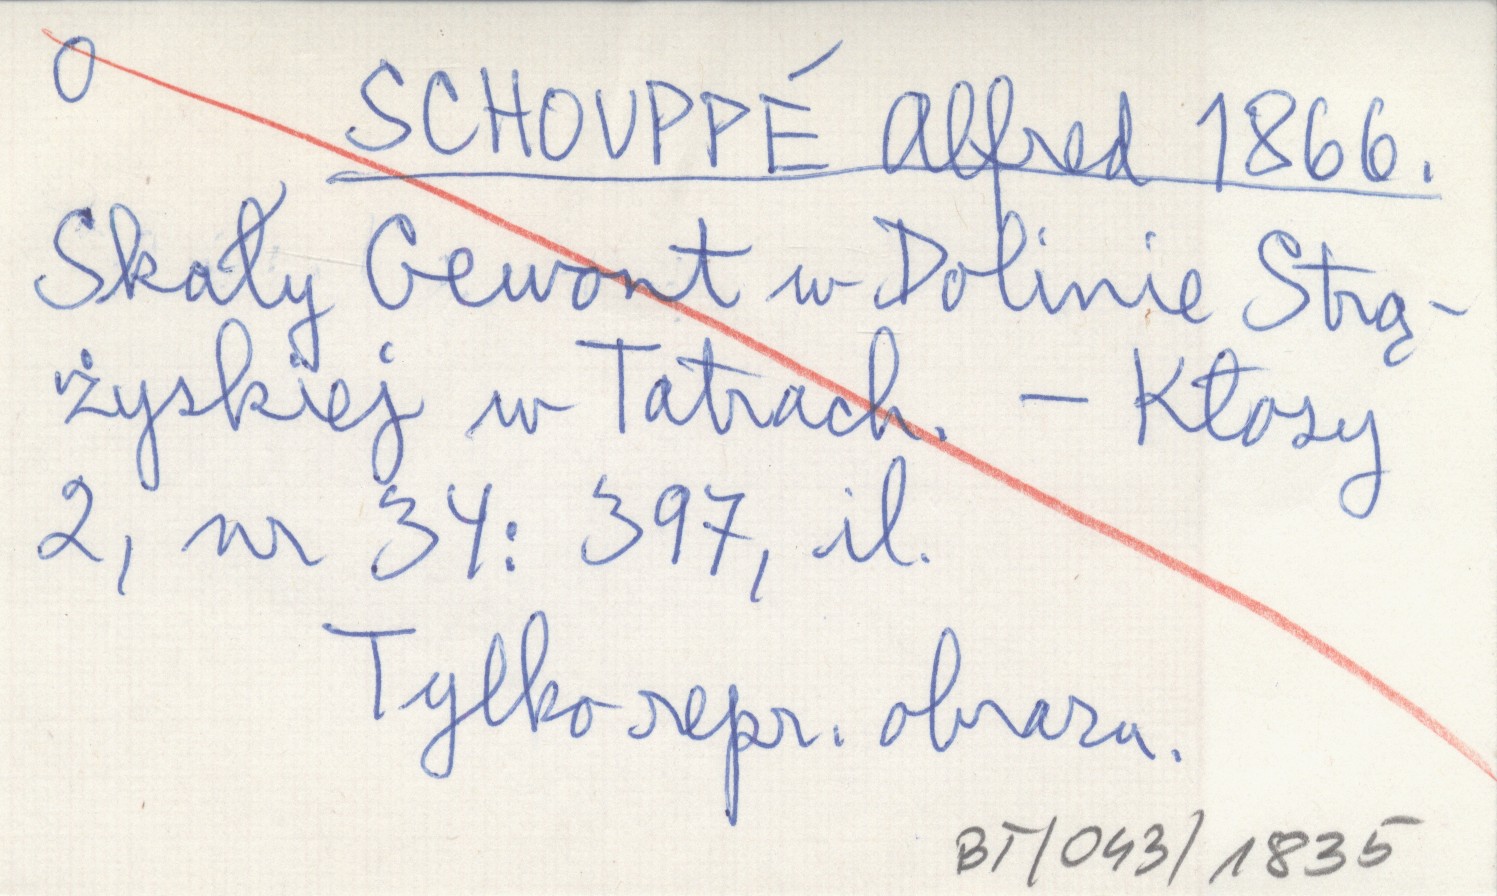 O
SCHOUPPÉ Alfred 1866.
Skały Gewont w Dolinie Strą-
żyskiej w Tatrach. – Kłosy
2, nr 34: 397, il.
Tylko repr. obrazu.
BT/043/1835